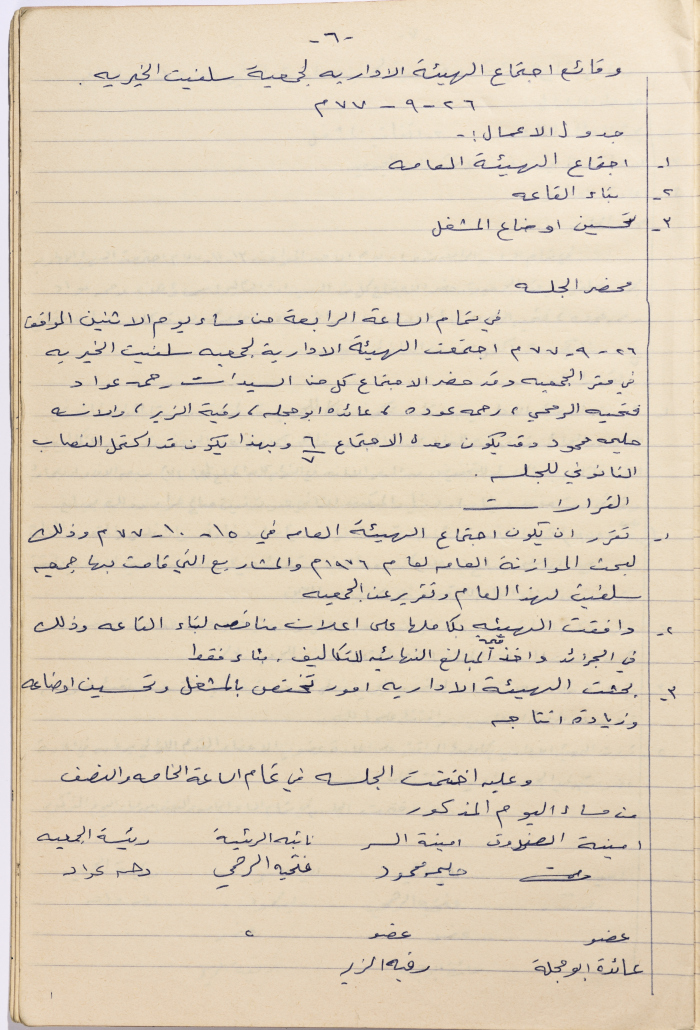 -٦-
وقائع اجتماع الهيئة الاداريه لجمعية سلفيت الخيريه .
٢٦-٩-٧٧م
جدول الاعمال :-
١- اجتماع الهيئة العامه
٢- بناء القاعه
٣- تحسين اوضاع المشغل
محضر الجلسه
في تمام الساعة الرابعة من مساء يوم الاثنين الموافق
٢٦-٩-٧٧م اجتمعت الهيئة الادارية لجمعيه سلفيت الخيريه
في مقر الجمعيه وقد حضر الاجتماع كل من السيدات رحمه عواد
فتحيه الرمحي ، رحمه عوده ، عائده ابو حجله ، رقية الزير ، والانسه
حليمه محمود وقد يكون مدة الاجتماع ٦ وبهذا يكون قد اكتمل النصاب
القانوني للجلسه .
القرارات
١- تقرر ان يكون اجتماع الهيئة العامه في ١٥-١٠-٧٧م وذلك
لبحث الموازنة العامه لعام ١٩٧٦م والمشاريع التي قامت بها جمعيه
سلفيت لهذا العام وتقرير عن الجمعيه
٢- وافقت الهيئه بكاملها على اعلان مناقصه لبناء القاعه وذلك
في الجرائد واخذ قيمة المبالغ النهائيه للتكاليف . بناء فقط
٣- بحثت الهيئة الاداريه امور تختص بالمشغل وتحسين اوضاعه
وزيادة انتاجه
وعليه اختتمت الجلسه في تمام الساعة الخامسه والنصف
من مساء اليوم المذكور
امينة الصندوق امينة السر نائبه الرئيسة رئيسة الجمعيه
حليمه محمود فتحيه الرمحي رحمه عواد
عضو عضو
عائدة ابو حجلة رقيه الزير